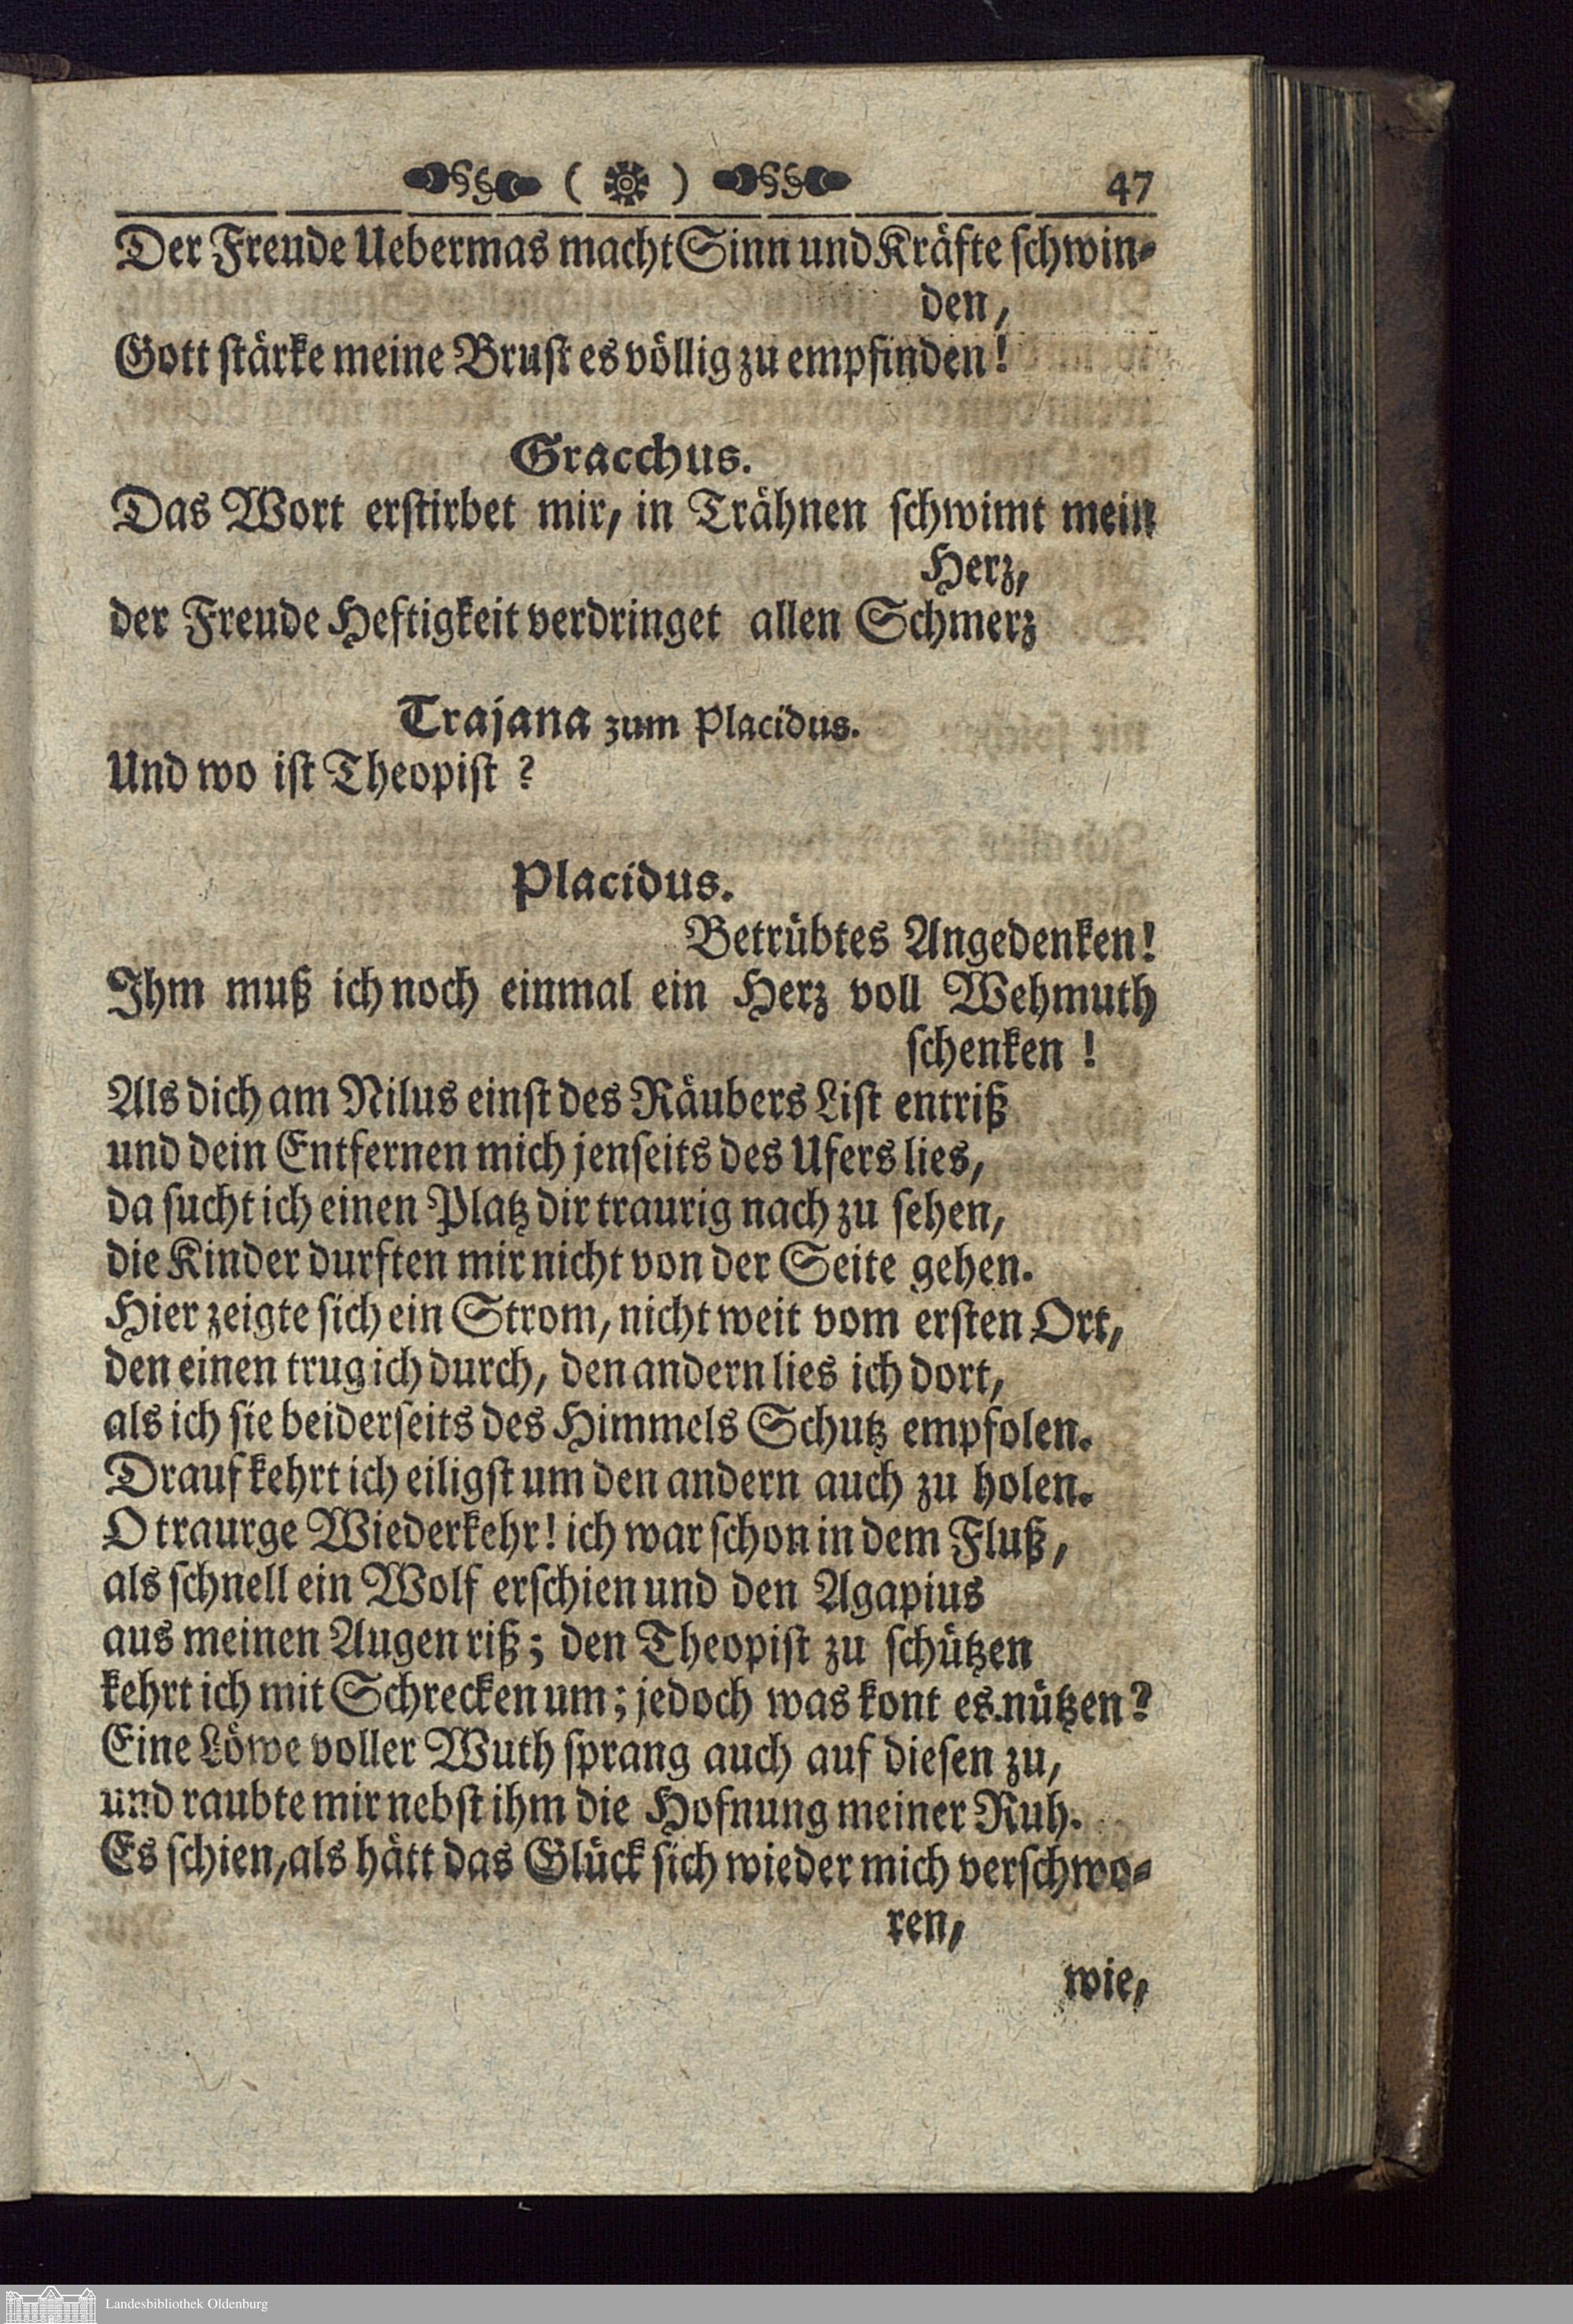 ( ) 47
Der Freude Uebermas macht Sinn und Kräfte schwin-
den,
Gott stärke meine Brust es völlig zu empfinden!
Gracchus.
Das Wort erstirbet mir, in Trähnen schwimt mein
Herz,
der Freude Heftigkeit verdringet allen Schmerz
Trajana zum Placidus.
Und wo ist Theopist ?
Placidus.
Betrübtes Angedenken!
Ihm muß ich noch einmal ein Herz voll Wehmuth
schenken !
Als dich am Nilus einst des Räubers List entriß
und dein Entfernen mich jenseits des Ufers lies,
da sucht ich einen Platz dir traurig nach zu sehen,
die Kinder durften mir nicht von der Seite gehen.
Hier zeigte sich ein Strom, nicht weit vom ersten Ort,
den einen trug ich durch, den andern lies ich dort,
als ich sie beiderseits des Himmels Schutz empfolen.
Drauf kehrt ich eiligst um den andern auch zu holen.
O traurge Wiederkehr! ich war schon in dem Fluß,
als schnell ein Wolf erschien und den Agapius
aus meinen Augen riß; den Theopist zu schützen
kehrt ich mit Schrecken um; jedoch was kont es nützen?
Eine Löwe voller Wuth sprang auch auf diesen zu,
und raubte mir nebst ihm die Hofnung meiner Ruh.
Es schien, als hätt das Glück sich wieder mich verschwo-
ren,
wie,
Landesbibliothek Oldenburg